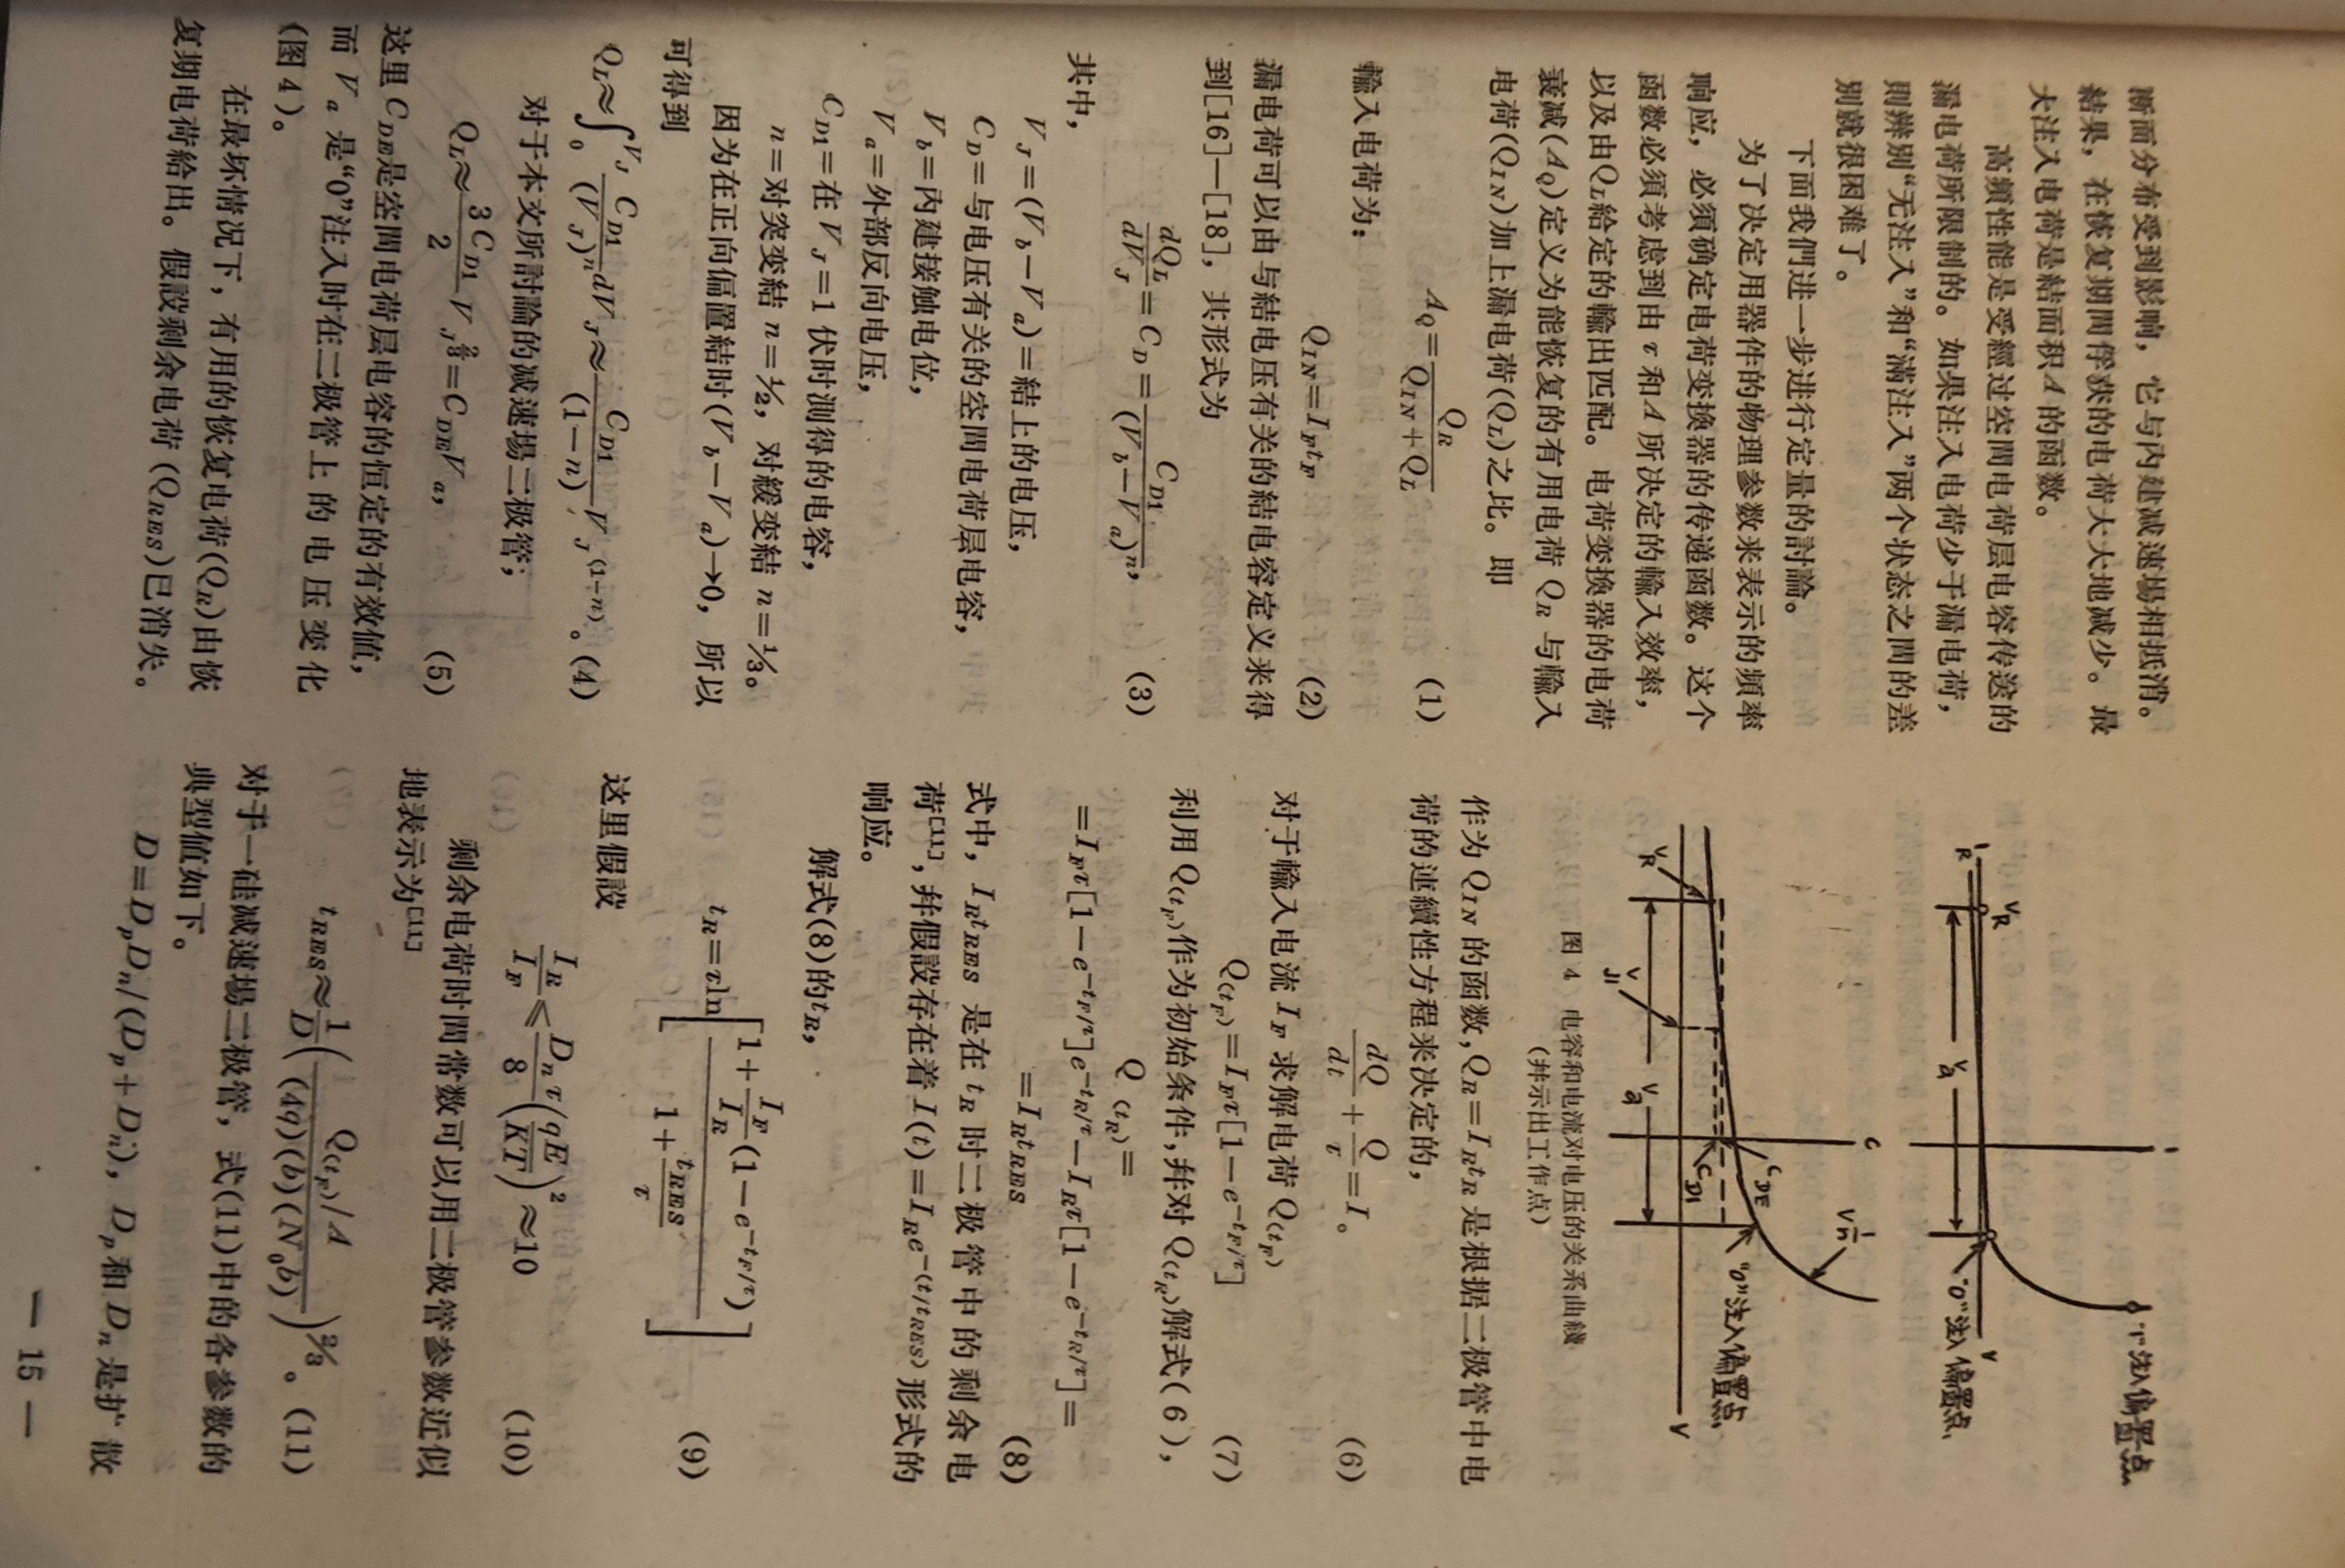 断面分布受到影响，它与内建减速場相抵消。
結果，在恢复期間俘获的电荷大大地减少。最
大注入电荷是結面积A的函数。
高頻性能是受經过空間电荷层电容传送的
漏电荷所限制的。如果注入电荷少于漏电荷，
則辨别“无注入”和“滿注入”两个状态之間的差
别就很困难了。
下面我們进一步进行定量的討論。
为了决定用器件的物理参数来表示的頻率
响应，必須确定电荷变换器的传递函数。这个
函数必須考虑到由τ和A所决定的輸入效率，
以及由Q_L給定的輸出匹配。电荷变换器的电荷
衰减(A_Q)定义为能恢复的有用电荷Q_R与輸入
电荷(Q_IN)加上漏电荷(Q_L)之比。即
A_Q=Q_R/(Q_IN+Q_L) (1)
輸入电荷为：
Q_IN=I_F t_F (2)
漏电荷可以由与結电压有关的結电容定义来得
到[16]—[18]，其形式为
dQ_L/dV_J=C_D=C_D1/(V_b−V_a)^n， (3)
其中，
V_J=(V_b−V_a)=結上的电压，
C_D=与电压有关的空間电荷层电容，
V_b=内建接触电位，
V_a=外部反向电压，
C_D1=在V_J=1伏时測得的电容，
n=对突变結n=½，对緩变結n=⅓。
因为在正向偏置結时(V_b−V_a)→0，所以
可得到
Q_L≈∫_0^{V_J} C_D1/(V_J)^n dV_J≈C_D1/(1−n) V_J^(1−n)。(4)
对于本文所討論的减速場二极管；
Q_L≈3C_D1/2 V_J^⅔=C_DE V_a， (5)
这里C_DE是空間电荷层电容的恒定的有效值，
而V_a是“0”注入时在二极管上的电压变化
(图4)。
在最坏情况下，有用的恢复电荷(Q_R)由恢
复期电荷給出。假設剩余电荷(Q_RES)已消失。
I
“1”注入偏置点
V_R
I_R
V_a
V
“0”注入偏置点
C
V^(1/n)
C_DE
“0”注入偏置点
C_D1
V_R
V_J1
V_a
V
图4 电容和电流对电压的关系曲綫
(并示出工作点)
作为Q_IN的函数，Q_R=I_R t_R是根据二极管中电
荷的连續性方程来决定的，
dQ/dt+Q/τ=I。 (6)
对于輸入电流I_F求解电荷Q(t_F)
Q(t_F)=I_F τ[1−e^(−t_F/τ)] (7)
利用Q(t_F)作为初始条件，并对Q(t_R)解式(6)，
Q(t_R)=
=I_F τ[1−e^(−t_F/τ)]e^(−t_R/τ)−I_R τ[1−e^(−t_R/τ)]=
=I_R t_RES (8)
式中，I_R t_RES是在t_R时二极管中的剩余电
荷[11]，并假設存在着I(t)=I_R e^−(t/t_RES)形式的
响应。
解式(8)的t_R，
t_R=τln[(1+I_F/I_R(1−e^(−t_F/τ)))/(1+t_RES/τ)] (9)
这里假設
I_R/I_F≤D_n τ/8(qE/KT)^2≈10 (10)
剩余电荷时間常数可以用二极管参数近似
地表示为[11]
t_RES≈1/D(Q(t_F)/A/(4q)(b)(N_0 b))^⅔。(11)
对于一硅减速場二极管，式(11)中的各参数的
典型值如下。
D=D_p D_n/(D_p+D_n)，D_p和D_n是扩散
— 15 —